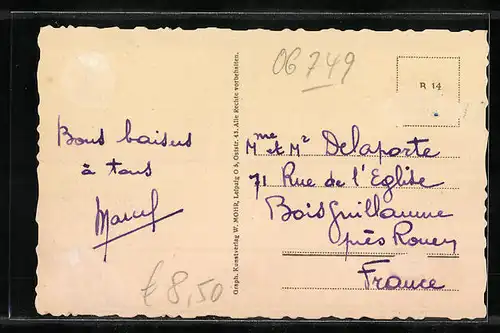 06749
R 14
Bons baisers
à tous
Marcel
Graph. Kunstverlag W. MOHR, Leipzig O 5, Oststr. 43. Alle Rechte vorbehalten.
Mme et Mr Delaporte
71 Rue de l'Eglise
Bois Guillaume
près Rouen
France
£ 8,50